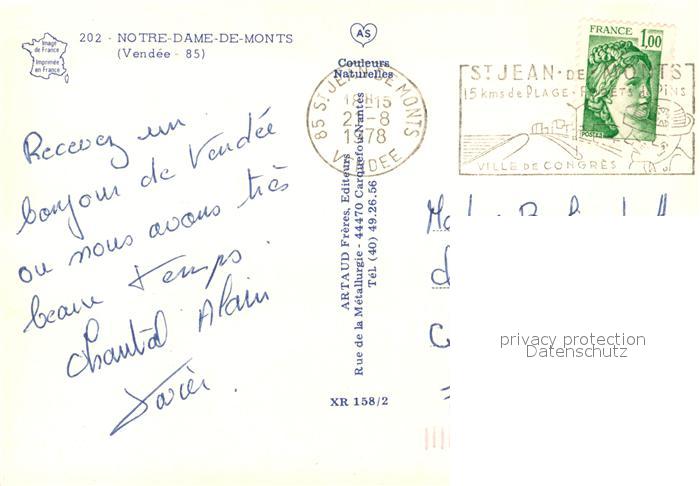 202 - NOTRE-DAME-DE-MONTS
(Vendée - 85)
Image
de France
Imprimée
en France
AS
Couleurs
Naturelles
Recevez un
bonjour de Vendée
ou nous avons très
beau temps.
Chantal Alain
ARTAUD Frères, Editeurs
Rue de la Métallurgie - 44470 Carquefou-Nantes
Tél. (40) 49.26.56
XR 158/2
85 ST JEAN DE MONTS
18H15
2-8
1978
VENDEE
ST JEAN-DE MONTS
15 kms de PLAGE - FORETS de PINS
VILLE DE CONGRÈS
FRANCE
1,00
POSTES
privacy protection
Datenschutz